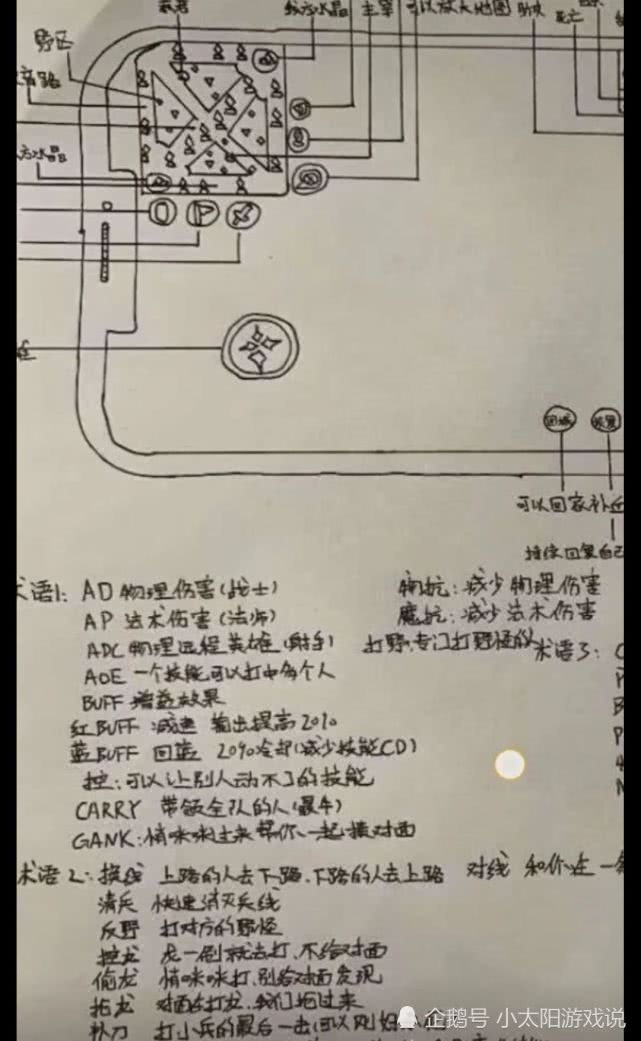 野区
敌方水晶
主宰
可以放大地图
死亡
方水晶
回城
恢复
可以回家补
持续回复自己
术语1: AD 物理伤害(战士)
物抗: 减少物理伤害
AP 法术伤害(法师)
魔抗: 减少法术伤害
ADC 物理远程英雄(射手)
打野,专门打野怪的
术语3:
AOE 一个技能可以打中多个人
BUFF 增益效果
红BUFF 减速 输出提高20%
蓝BUFF 回蓝 20%冷却(减少技能CD)
控: 可以让别人动不了的技能
CARRY 带领全队的人(最牛)
GANK: 悄咪咪过来帮你一起搞对面
术语2: 换线 上路的人去下路、下路的人去上路
对线 和你在一条
清兵 快速消灭兵线
反野 打对方的野怪
控龙 龙一刷就去打,不给对面
偷龙 悄咪咪打,别给对面发现
抢龙 对面在打龙,我们抢过来
补刀 打小兵的最后一击(可以
企鹅号 小太阳游戏说